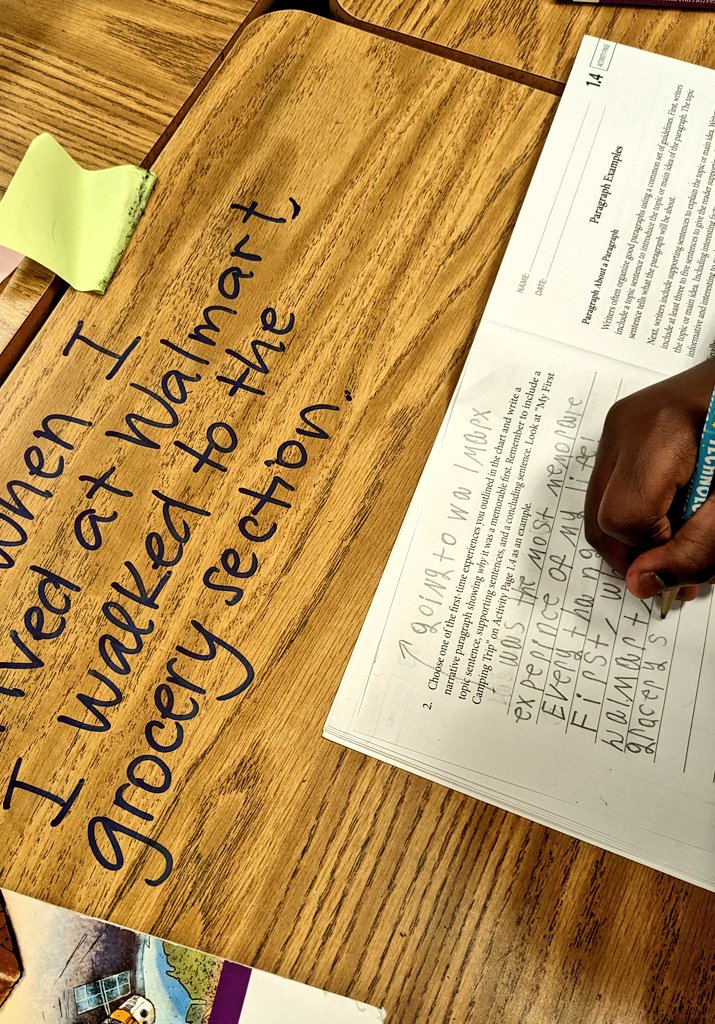 When I
ived at Walmart,
I walked to the
grocery section.
2. Choose one of the first-time experiences you outlined in the chart and write a
narrative paragraph showing why it was a memorable first. Remember to include a
topic sentence, supporting sentences, and a concluding sentence. Look at “My First
Camping Trip” on Activity Page 1.4 as an example.
going to
was the most
experince of my life!
Every
First
walmart
gracery s
NAME:
DATE:
1.4
ACTIVITY PAGE
Paragraph Examples
Paragraph About a Paragraph
Writers often organize good paragraphs using a common set of guidelines. First, writers
include a topic sentence to introduce the topic or main idea of the paragraph. The topic
sentence tells what the paragraph will be about.
Next, writers include supporting sentences to explain the topic or main idea.
include at least three to five sentences to give the reader
the topic or main idea. Including interesting
informative and interesting to